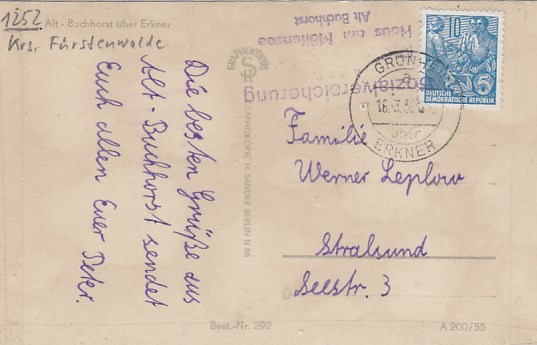 1252
Alt - Buchhorst über Erkner
Krs. Fürstenwalde
Die besten Grüße aus
Alt-Buchhorst sendet
Euch allen Euer Peter.
Haus am Möllensee
Alt Buchhorst
Sozialversicherung
GRÜNH
a
16.3.
über
ERKNER
10
5
DEUTSCHE
DEMOKRATISCHE REPUBLIK
Familie
Werner Leplow
Stralsund
Seestr. 3
H. SANDER BERLIN N 58
Best.-Nr. 292
A 200/55